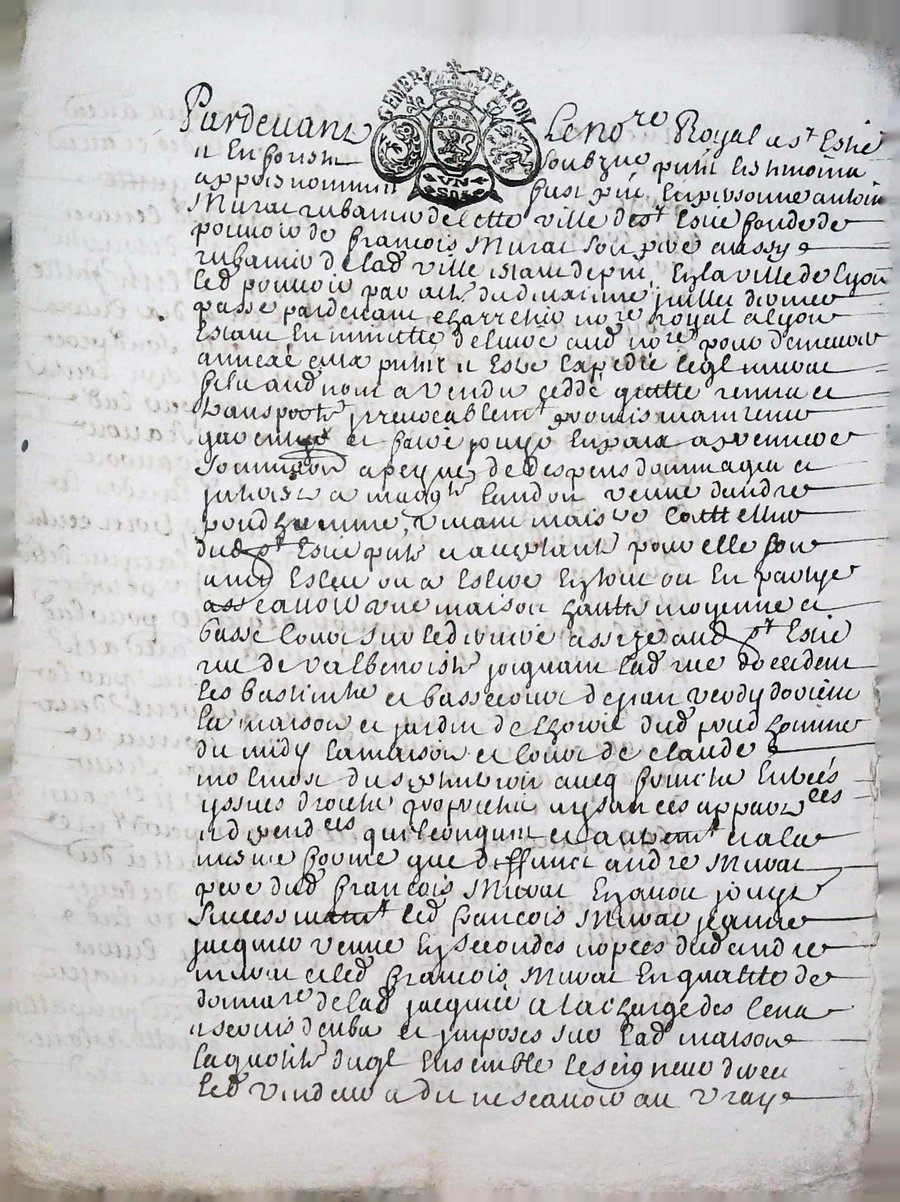 GENER^T DE LYON
VN SOLS
Pardevant Le no^re Royal a s^t Este
et En forisie soubzneputé Les tmoins
appres nommes fust pnt En personne antoin
Murat rubanier de cette ville de s^t Este fondé de
pouvoir de francois Murat son pere aussy
rubanier de lad ville estant de pnt En la ville de Lyon
Led pouvoir par acte du dixieme juillet dernier
passé pardevant no^re Royal a Lyon
Estant En minutte delivré aud no^re pour demeurer
annexé aux pntes et Este Lequel murat
filz aud nom a vendu ceddé quitte remis et
transporté jrrevocablem^t promis maintenir
garentir et faire jouyr En paix a peyne de
a peyne de despens dommages et
jnterest a marg^te Landon veuve dandre
poudhomme, vivant maistre Couttellier
dud s^t Este pnte et acceptante pour elle son
amy Esleu ou a Eslire En tout ou En partye
asscavoir une maison haute moyenne et
basse Couvert sur le derriere assize aud s^t Este
rue de valbenoiste joignant lad rue doccident
Les bastiments et bassecour de jean verdy dorient
La maison et jardin de dud poudhomme
du midy La maison et Couvert de claude
molinost du septentrion avecq fonche Entrées
yssues droicts proprietés aysances appar^ces
et depend^ces quelconques et autrem^t et a la
mesme forme que deffunct andré Murat
pere dud francois Murat En avoit jouyt
Successivem^t Led francois Murat jeanne
jacquier veuve En secondes nopces dud andre
murat et led francois Murat En qualité de
donnat^re de lad jacquier a la charge des Cens
et servis deubz et jmposes sur lad maison
La quotité duql Ensemble Le seigneur direct
Led vendeur a dit ne scavoir au vraye